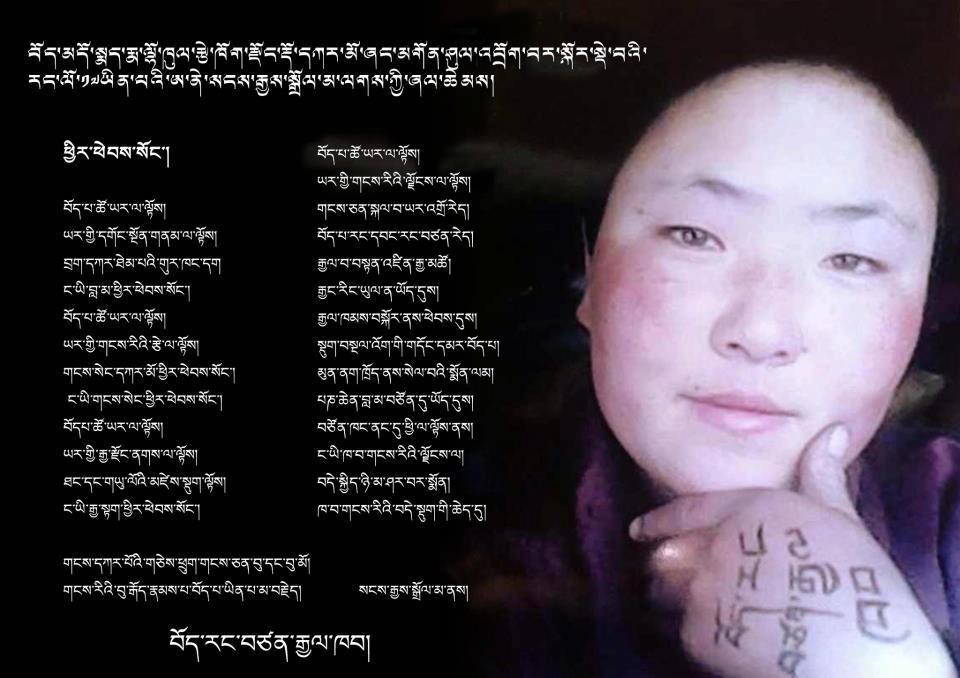 བོད་མདོ་སྨད་རྨ་ལྷོ་ཁུལ་རྩེ་ཁོག་རྫོང་རྡོ་དཀར་མོ་ཞང་མགོན་ཤུལ་འབྲོག་བར་སྐོར་སྡེ་བའི་
རང་ལོ་༡༧ཡིན་པའི་ཨ་ནེ་སངས་རྒྱས་སྒྲོལ་མ་ལགས་ཀྱི་ཞལ་ཆེམས།
ཕྱིར་ཕེབས་སོང་།
བོད་པ་ཚོ་ཡར་ལ་ལྟོས།
ཡར་གྱི་དགོང་སྔོན་གནམ་ལ་ལྟོས།
བྲག་དཀར་ཐེམ་པའི་གུར་ཁང་དག
ང་ཡི་བླ་མ་ཕྱིར་ཕེབས་སོང་།
བོད་པ་ཚོ་ཡར་ལ་ལྟོས།
ཡར་གྱི་གངས་རིའི་རྩེ་ལ་ལྟོས།
གངས་སེང་དཀར་མོ་ཕྱིར་ཕེབས་སོང་།
ང་ཡི་གངས་སེང་ཕྱིར་ཕེབས་སོང་།
བོདཔ་ཚོ་ཡར་ལ་ལྟོས།
ཡར་གྱི་རྒྱ་རྫོང་ནགས་ལ་ལྟོས།
ཐང་དང་གཡུ་ལོའི་མཛེས་སྡུག་ལྟོས།
ང་ཡི་རྒྱ་སྟག་ཕྱིར་ཕེབས་སོང་།
བོད་པ་ཚོ་ཡར་ལ་ལྟོས།
ཡར་གྱི་གངས་རིའི་ལྗོངས་ལ་ལྟོས།
གངས་ཅན་སྐལ་བ་ཡར་འགྲོ་རེད།
བོད་པ་རང་དབང་རང་བཙན་རེད།
རྒྱལ་བ་བསྟན་འཛིན་རྒྱ་མཚོ།
རྒྱང་རིང་ཡུལ་ན་ཡོད་དུས།
རྒྱལ་ཁམས་བསྐོར་ནས་ཕེབས་དུས།
སྡུག་བསྔལ་འོག་གི་གདོང་དམར་བོད་པ།
མུན་ནག་ཁྲོད་ནས་སེལ་བའི་སྨོན་ལམ།
པཎ་ཆེན་བླ་མ་བཙོན་དུ་ཡོད་དུས།
བཙོན་ཁང་ནང་དུ་ཕྱི་ལ་ལྟོས་ནས།
ང་ཡི་ཁ་བ་གངས་རིའི་ལྗོངས་ལ།
བདེ་སྐྱིད་ཉི་མ་ཤར་བར་སྨོན།
ཁ་བ་གངས་རིའི་བདེ་སྡུག་གི་ཆེད་དུ།
གངས་དཀར་པོའི་གཅེས་ཕྲུག་གངས་ཅན་བུ་དང་བུ་མོ།
གངས་རིའི་བུ་རྒོད་རྣམས་པ་བོད་པ་ཡིན་པ་མ་བརྗེད།
སངས་རྒྱས་སྒྲོལ་མ་ནས།
བོད་རང་བཙན་རྒྱལ་ཁབ།
བོད་རང
བཙན་རྒྱལ
ཁབ